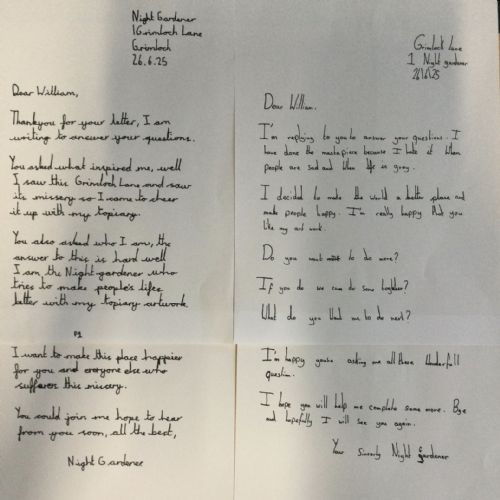 Night Gardener
1 Grimloch Lane
Grimloch
26.6.25
Dear William,
Thankyou for your letter, I am
writing to answer your questions.
You asked what inspired me, well
I saw this Grimloch Lane and saw
its missery so I came to cheer
it up with my topiary.
You also asked who I am, the
answer to this is hard well
I am the Night-gardener who
tries to make people's lifes
better with my topiary artwork.
P1
I want to make this place happier
for you and everyone else who
sufferes this missery.
You could join me hope to hear
from you soon, all the best,
Night Gardener
Grimlock Lane
1 Night gardener
26/6/25
Dear William.
I'm replying to you to answer your questions. I
have done the masterpiece because I hate it when
people are sad and when life is grey.
I decided to make the world a better place and
make people happy. I'm really happy that you
like my art work.
Do you want to do more?
If you do we can do some together?
What do you want me to do next?
I'm happy you're asking me all these wonderfull
question.
I hope you will help me complete some more. Bye
and hopefully I will see you again.
Your Sincerly Night gardener